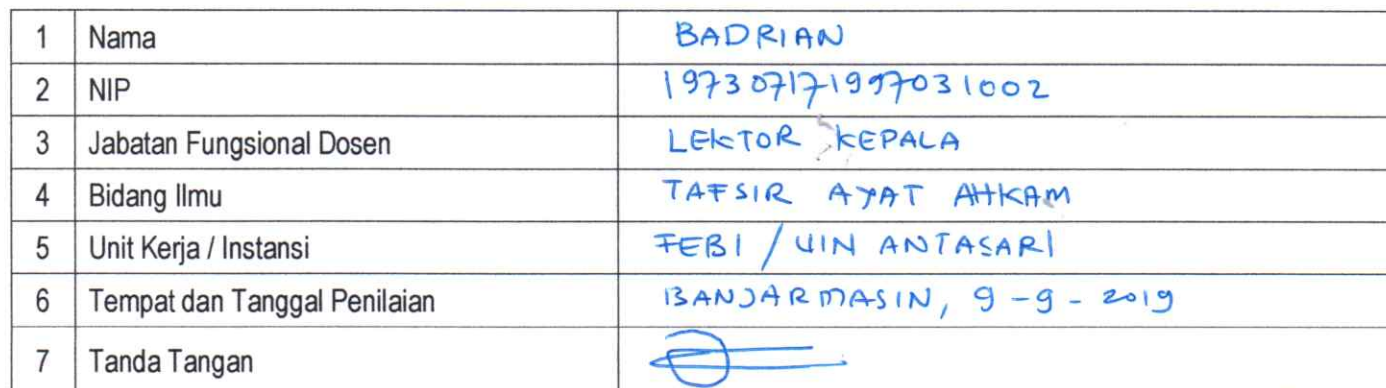 1 Nama BADRIAN
2 NIP 197307171997031002
3 Jabatan Fungsional Dosen LEKTOR KEPALA
4 Bidang Ilmu TAFSIR AYAT AHKAM
5 Unit Kerja / Instansi FEBI / UIN ANTASARI
6 Tempat dan Tanggal Penilaian BANJARMASIN, 9 - 9 - 2019
7 Tanda Tangan